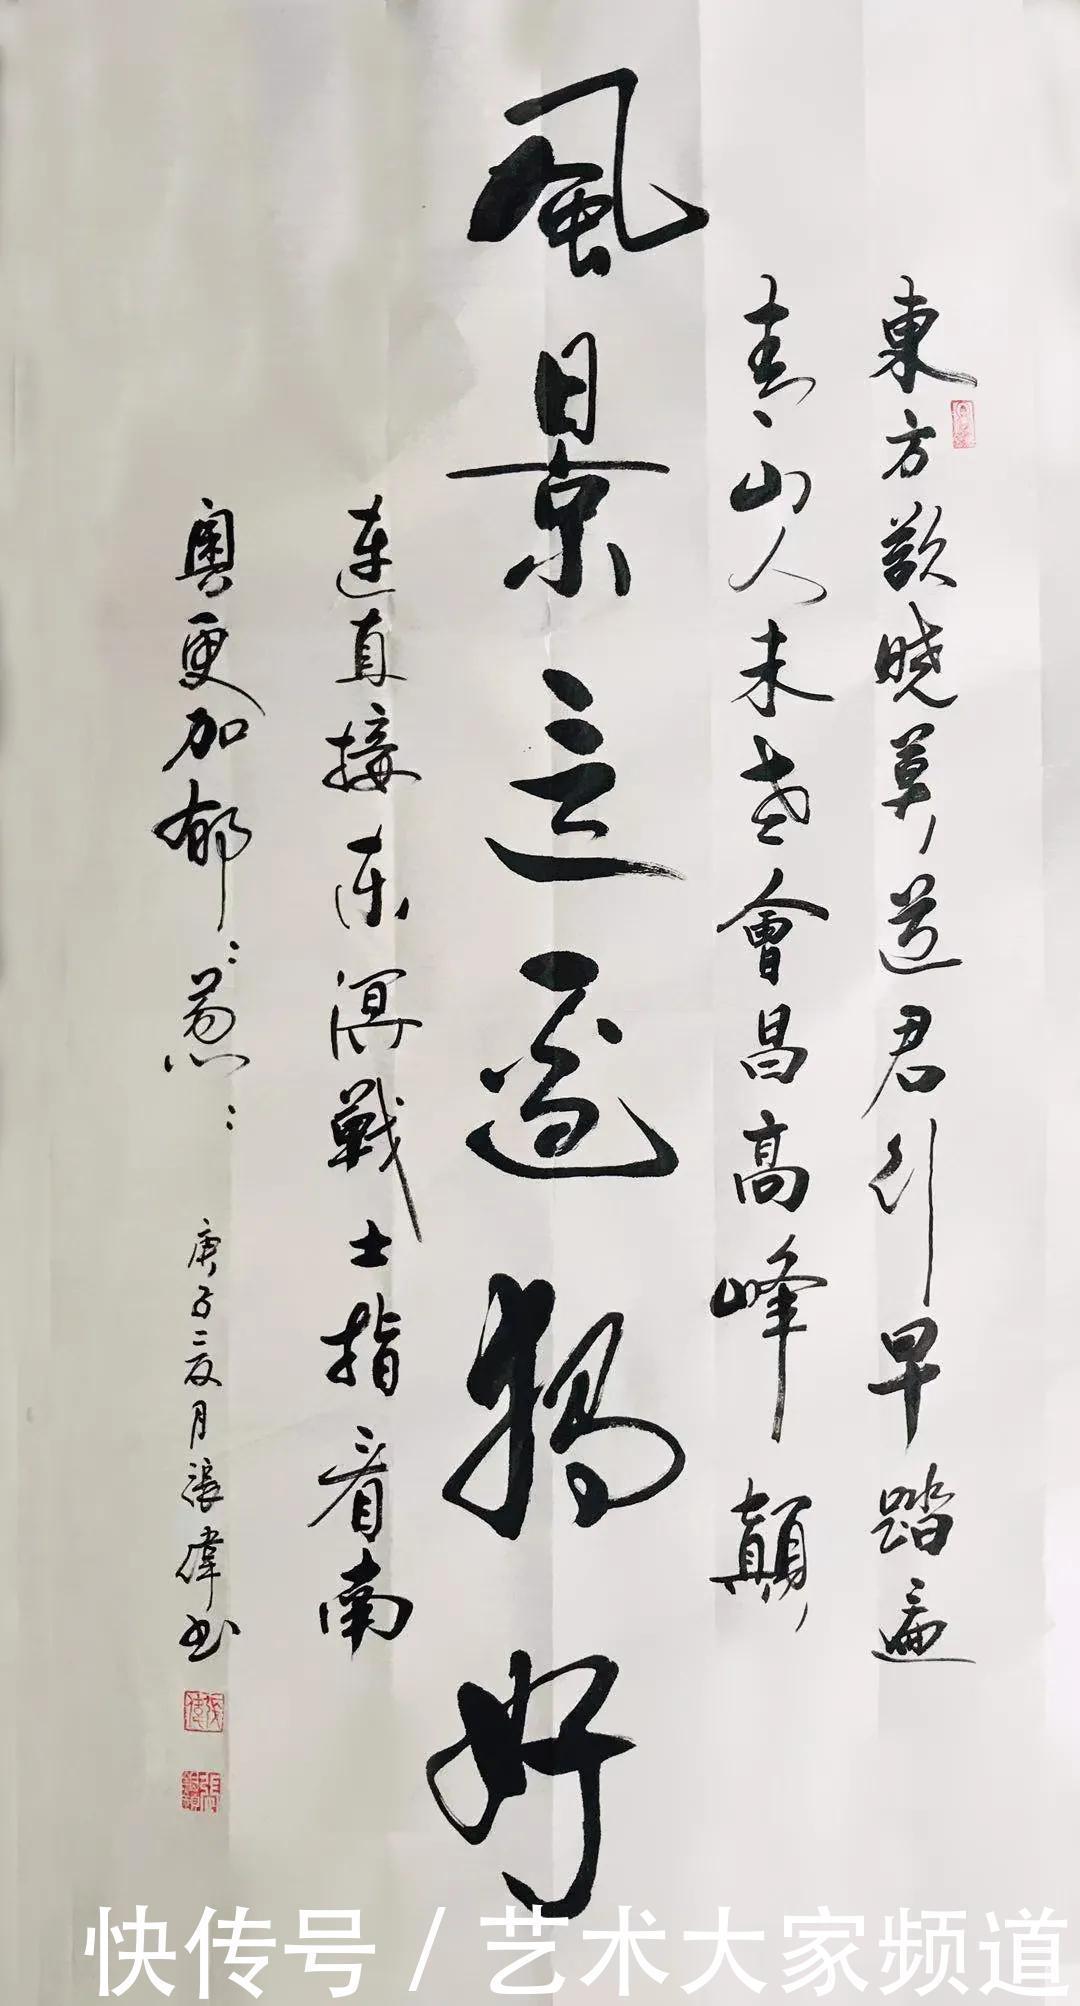 東方欲晓莫道君行早踏遍
青山人未老會昌高峰顛
風景這邊獨好
連直接东溟戰士指看南
粵更加郁〻葱〻
庚子夏月張偉书
張偉
快传号 / 艺术大家频道